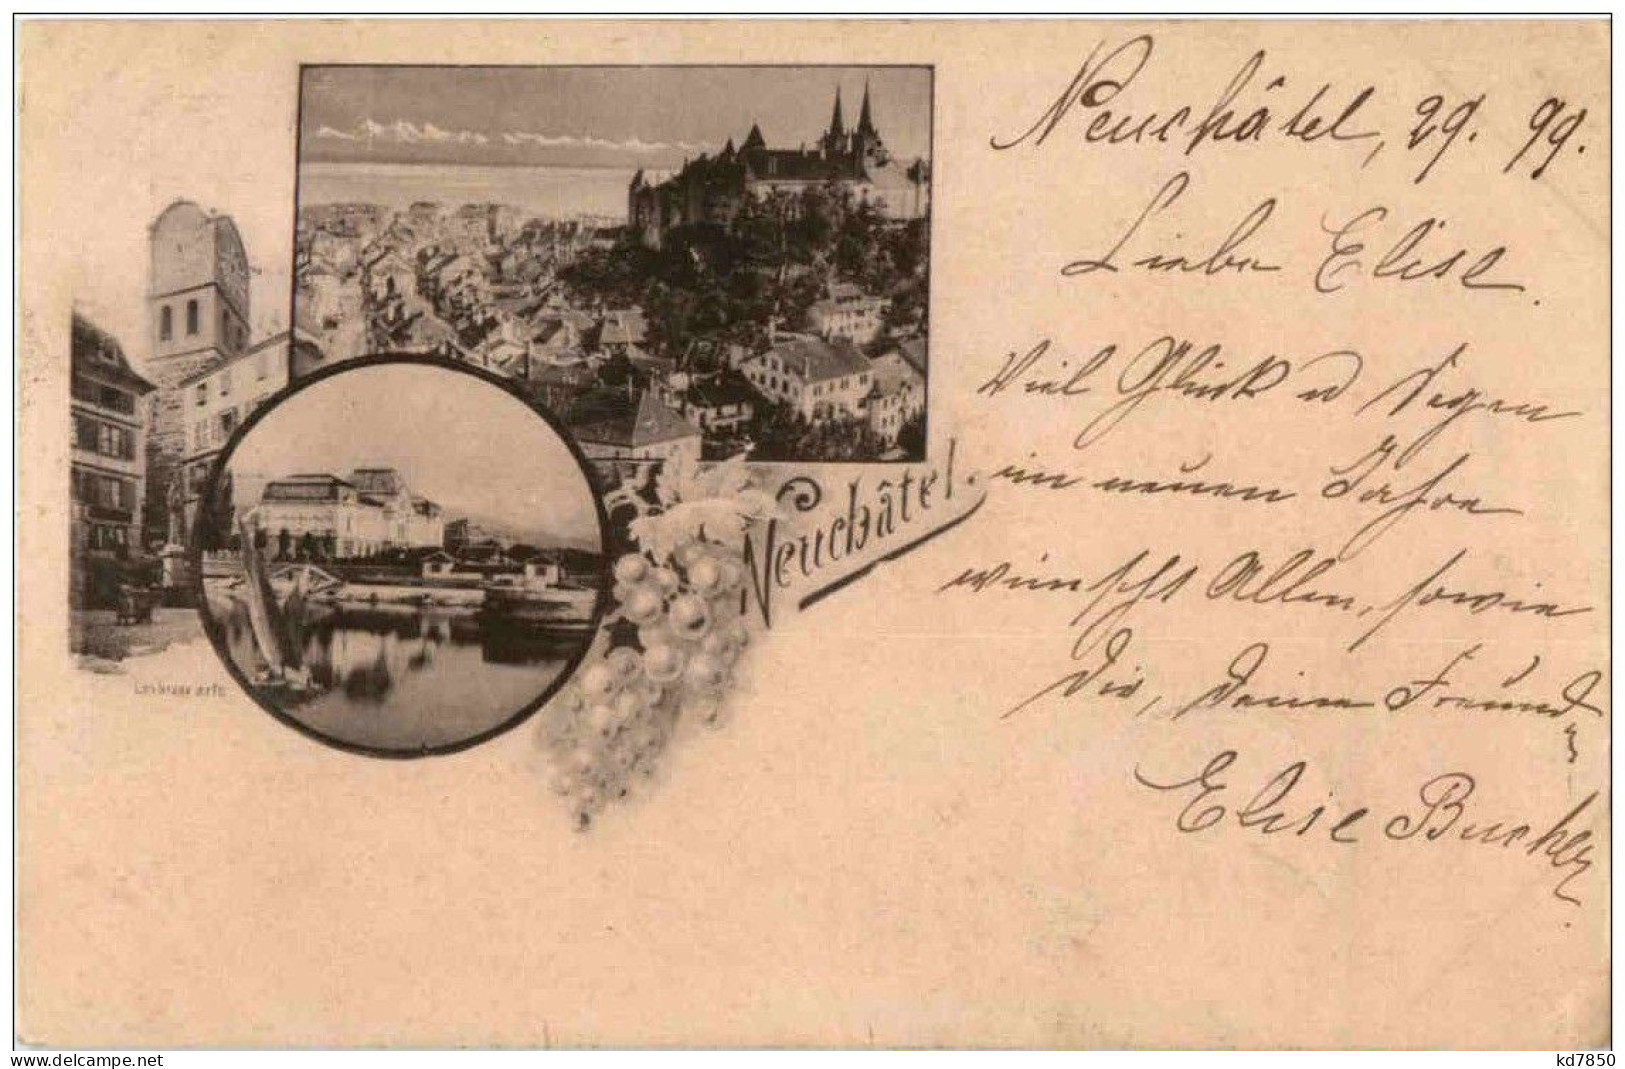 Neuchâtel, 29. 99.
Liebe Elise.
Viel Glück u Segen
im neuen Jahre
wünscht Allen, sowie
Dir, Deine Freundin
Elise Bucher.
Neuchâtel.
delcampe.net
kd7850